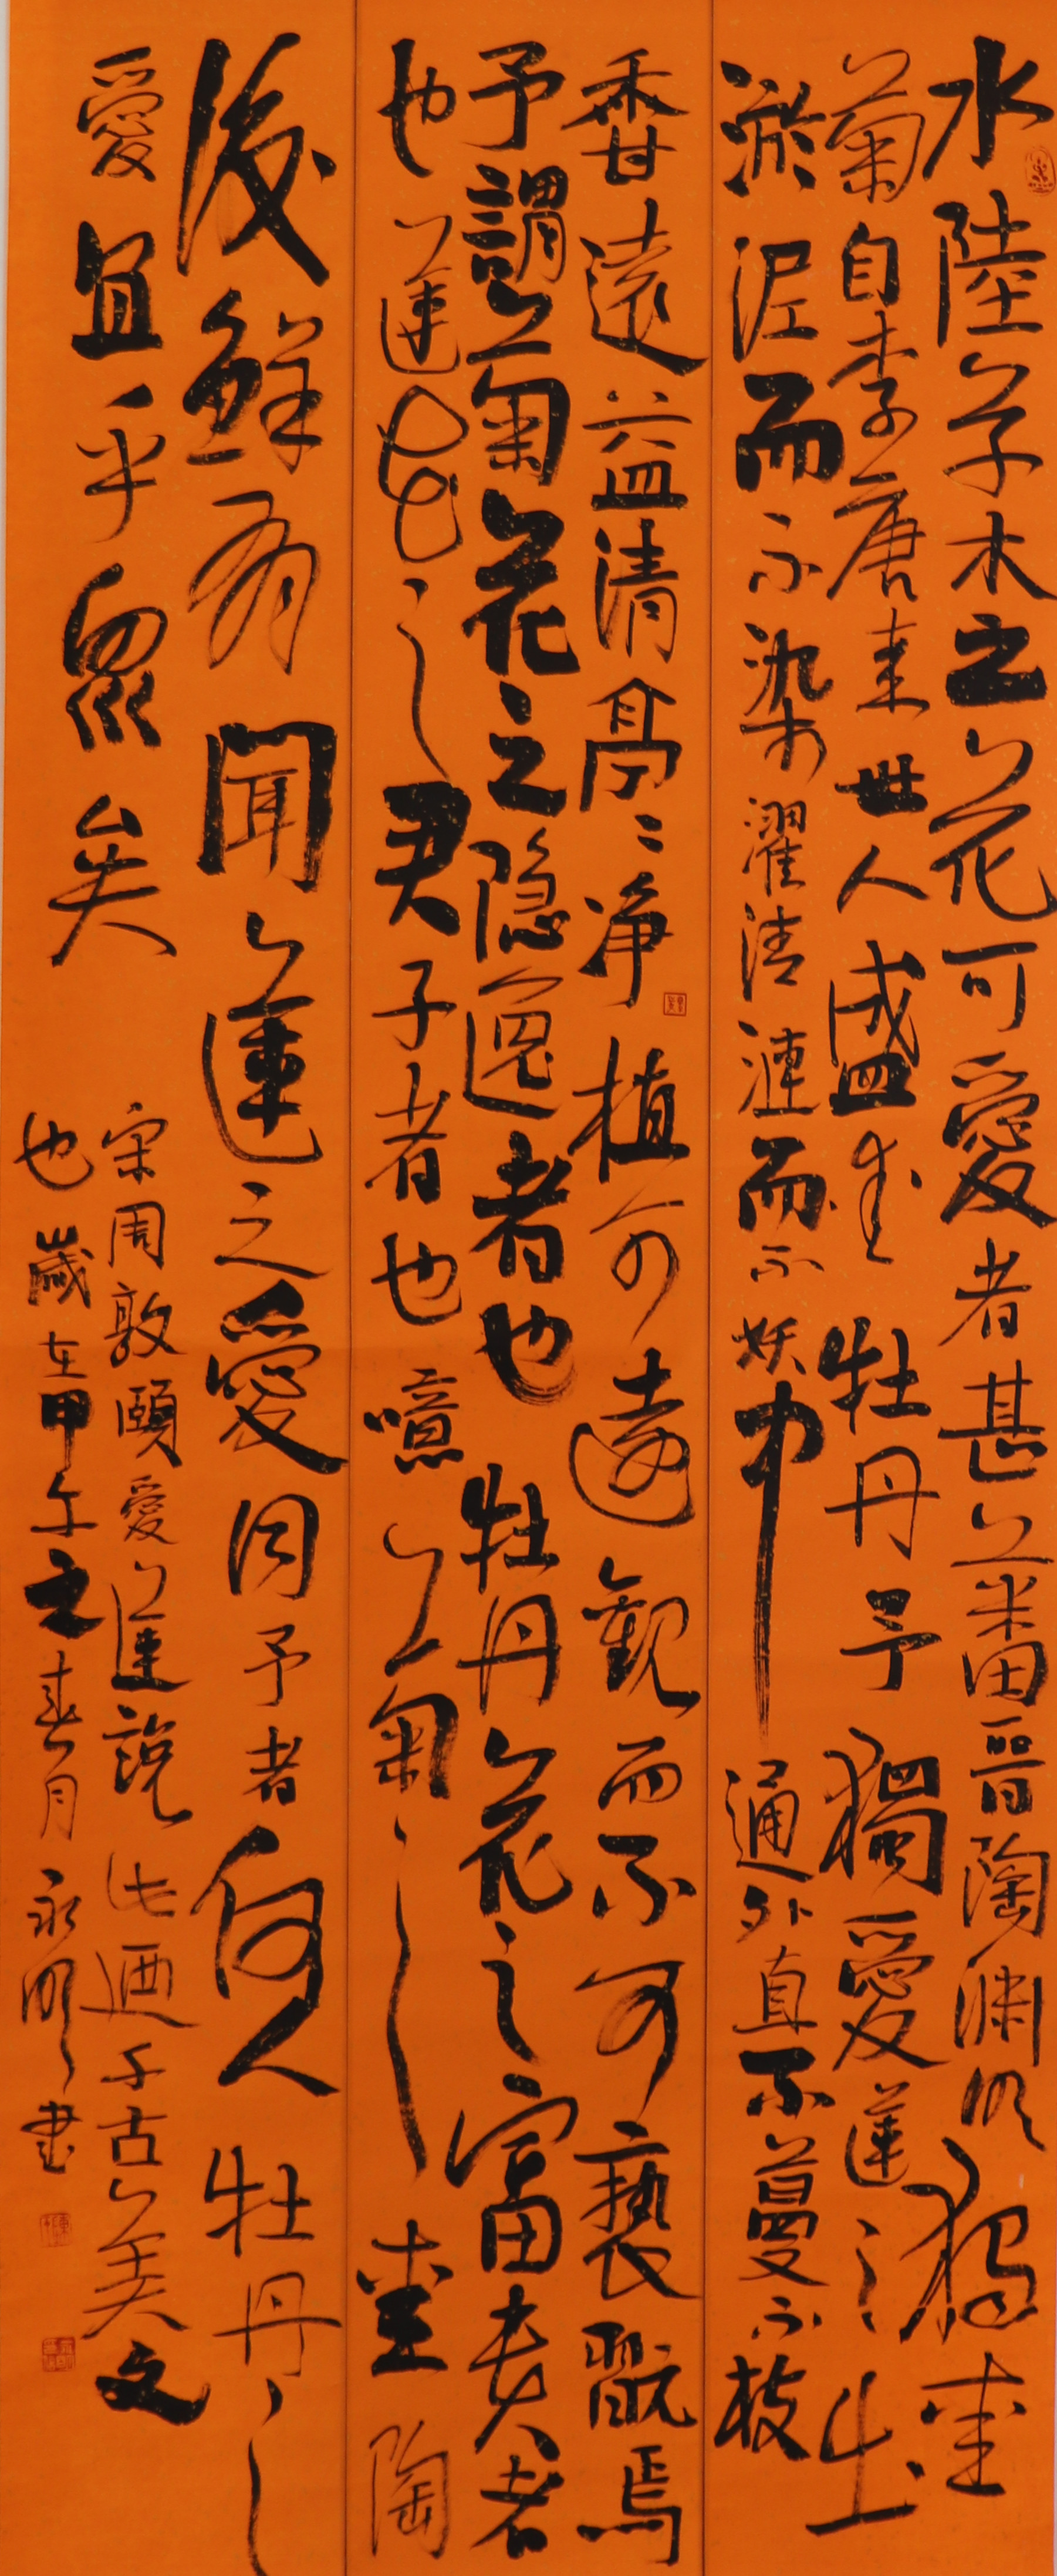 水陸草木之花可愛者甚蕃晉陶淵明獨爱
菊自李唐来世人盛爱牡丹予獨愛蓮之出
淤泥而不染濯清漣而不妖中通外直不蔓不枝
香遠益清亭〻净植可遠觀而不可褻翫焉
予謂菊花之隐逸者也牡丹花之富贵者
也蓮花之君子者也噫菊之爱陶
後鮮有聞蓮之愛同予者何人牡丹之
愛宜乎眾矣
宋周敦頤愛蓮説此迺千古美文
也歲在甲午之春月永明書